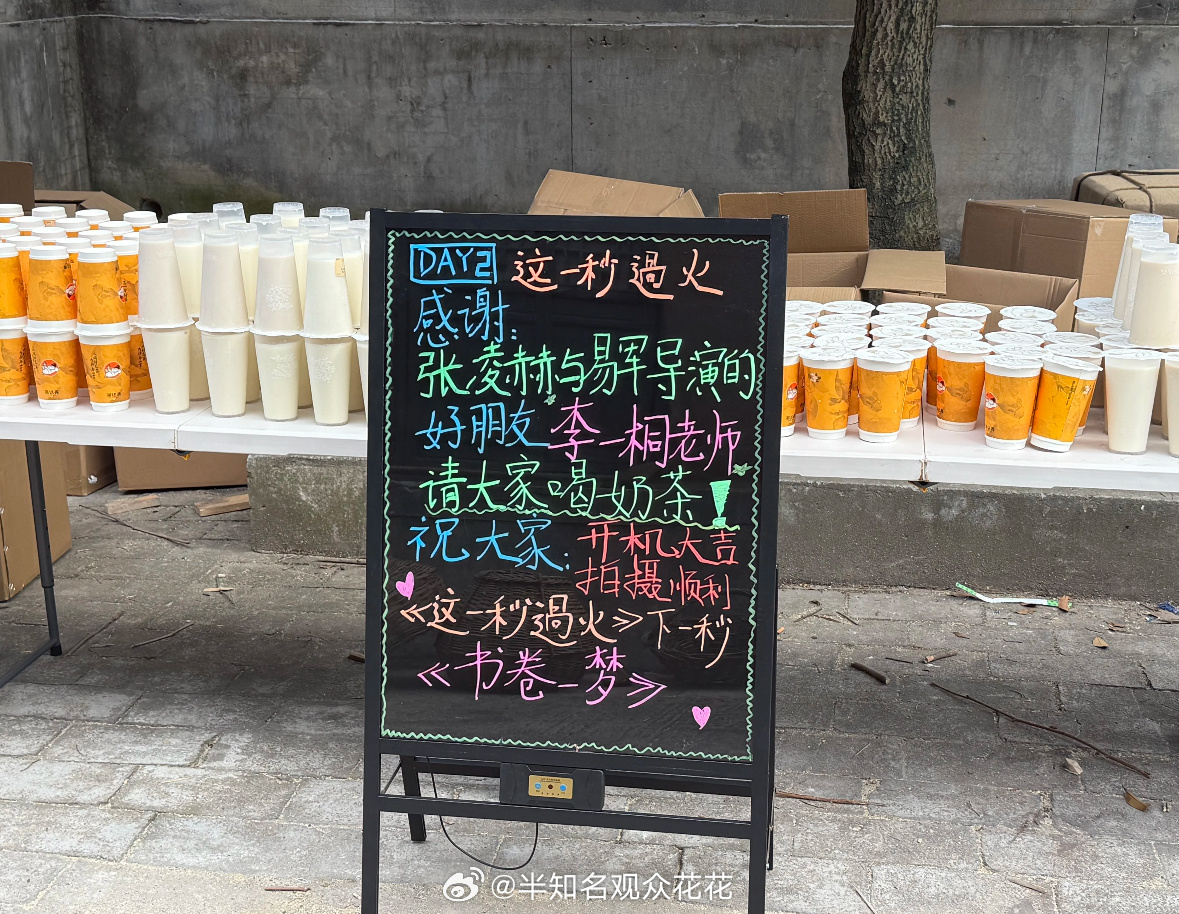 DAY2 这一秒過火
感谢:
张凌赫与易军导演的
好朋友李一桐老师
请大家喝奶茶!
祝大家:开机大吉
拍摄顺利
《这一秒過火》下一秒
《书卷一梦》
@半知名观众花花